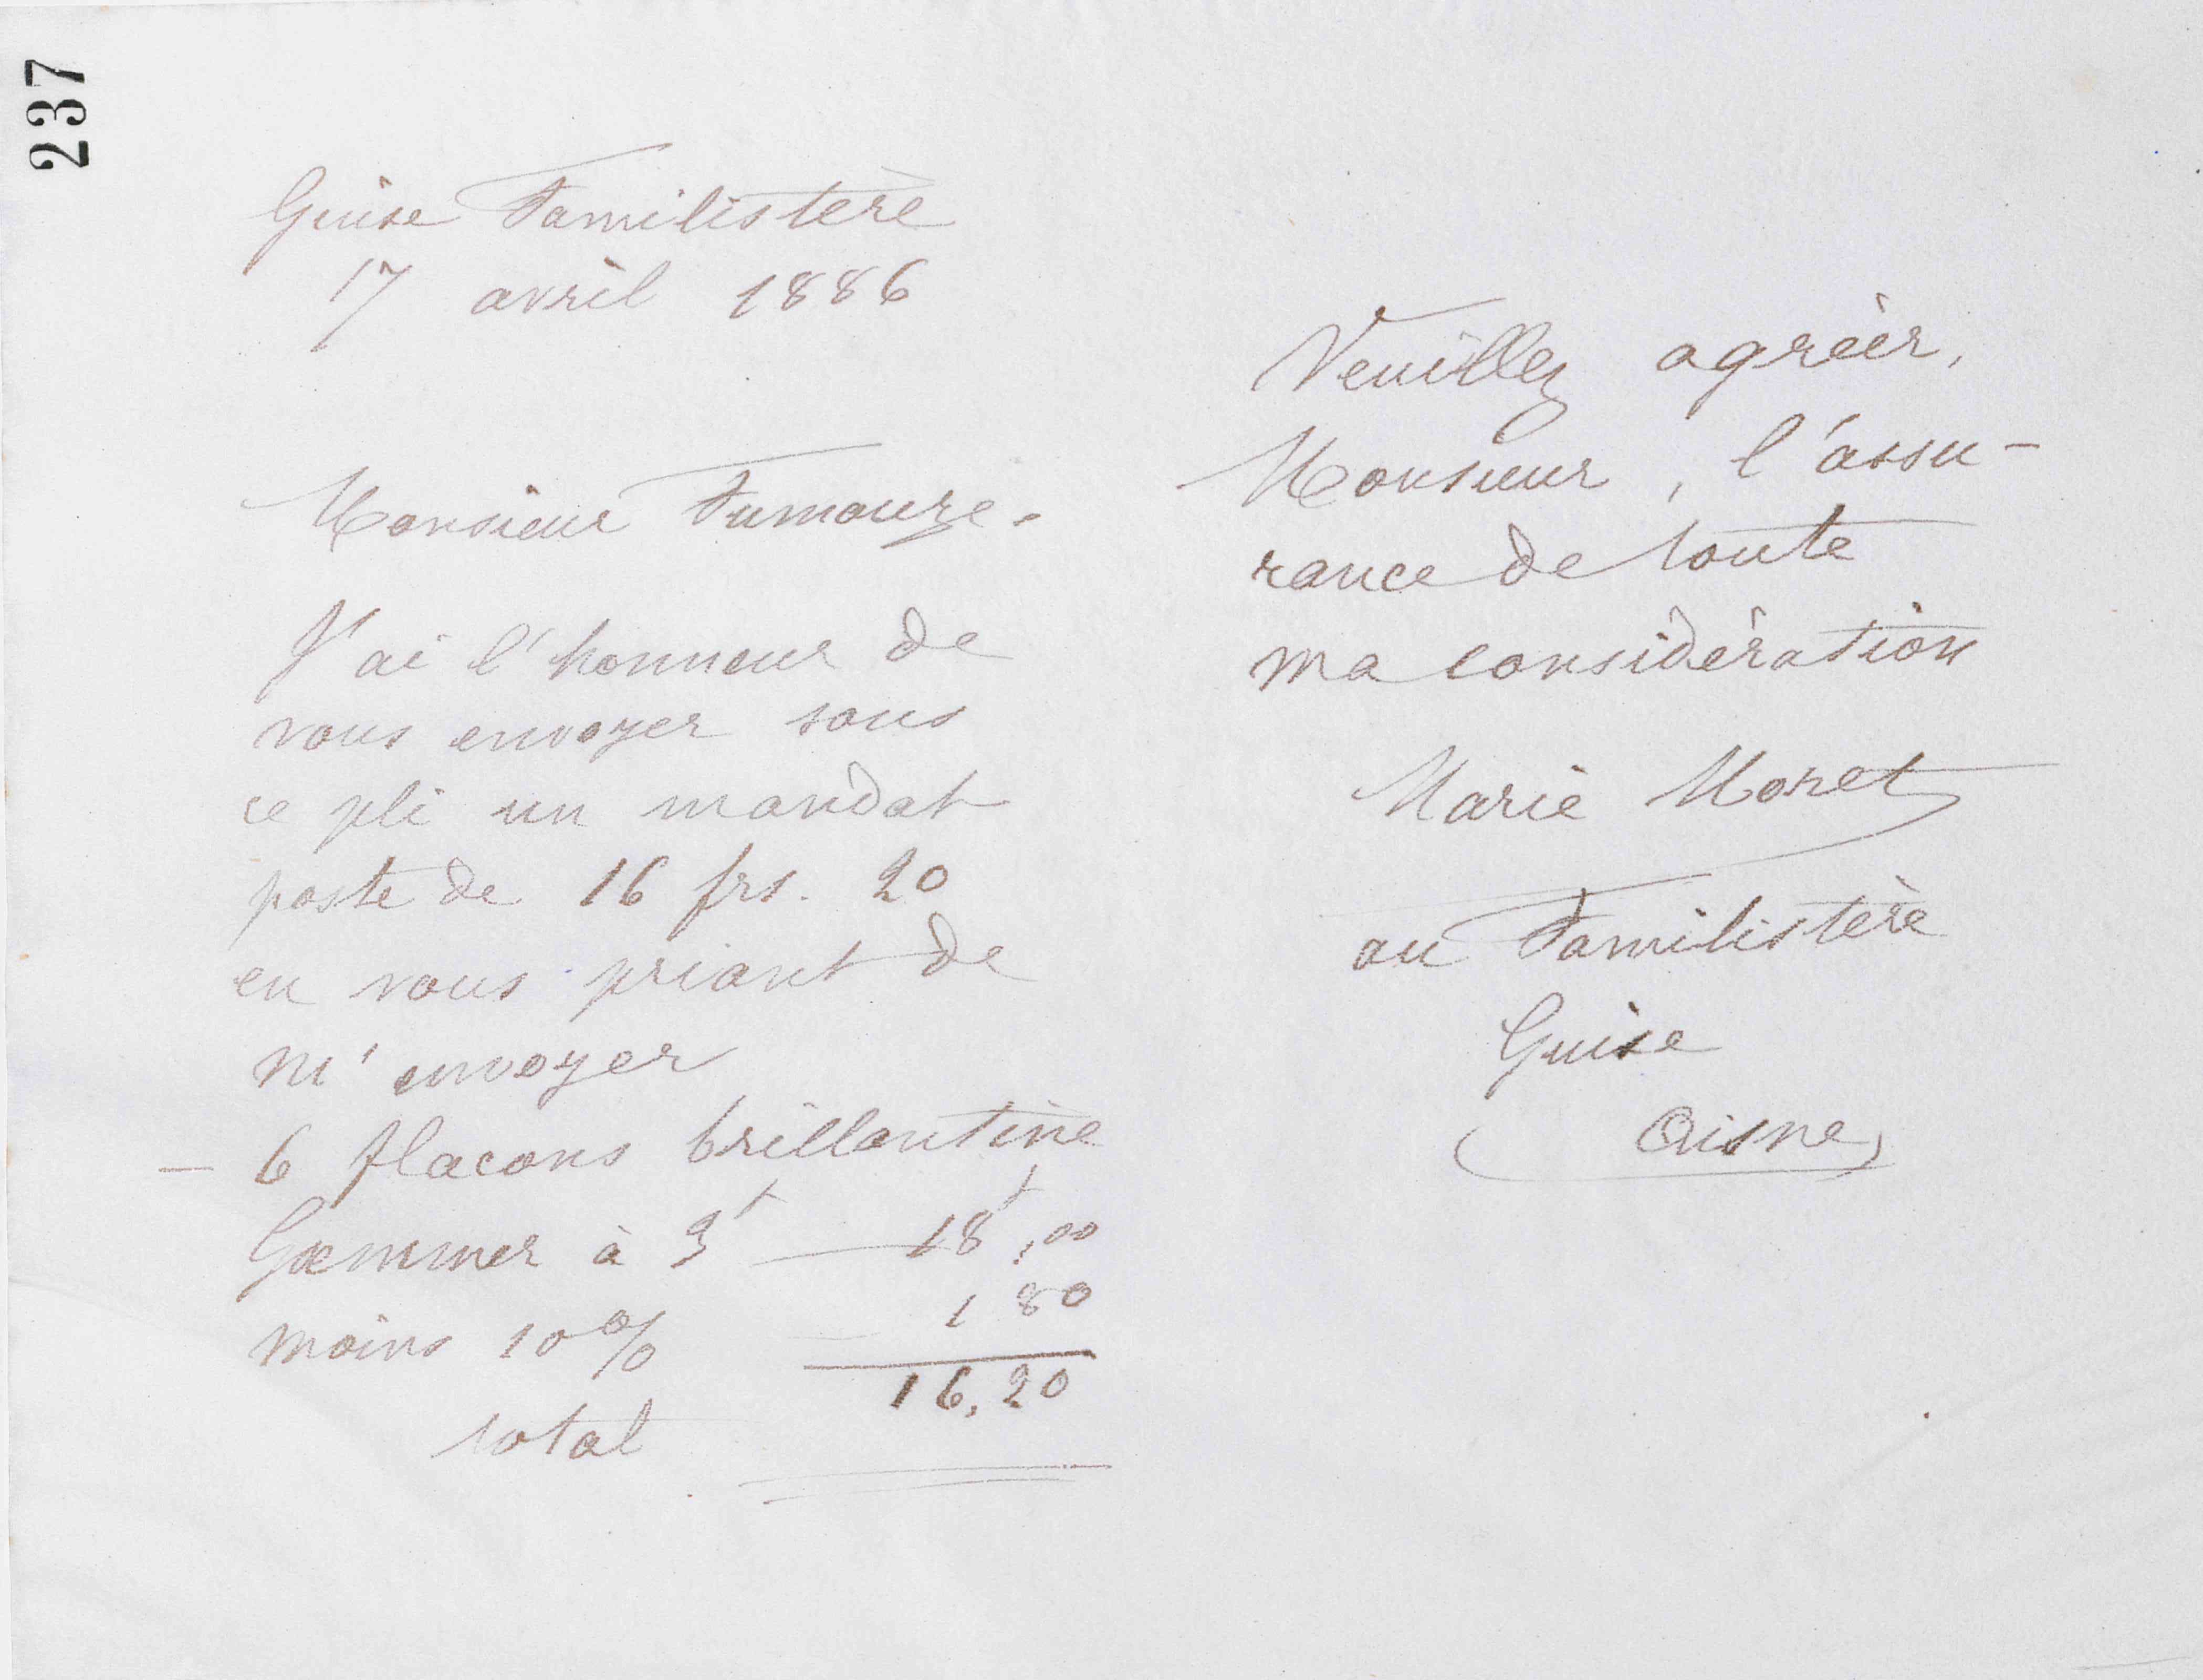 237
Guise Familistère
17 avril 1886
Monsieur Fumouze.
J'ai l'honneur de
vous envoyer sous
ce pli un mandat
poste de 16 frs. 20
en vous priant de
m'envoyer
— 6 flacons brillantine
Gæmmer à 3f — 18f,00
moins 10% 1 80
16,20
total
Veuillez agréer,
Monsieur, l'assu-
rance de toute
ma considération
Marie Moret
au Familistère
Guise
(Aisne)